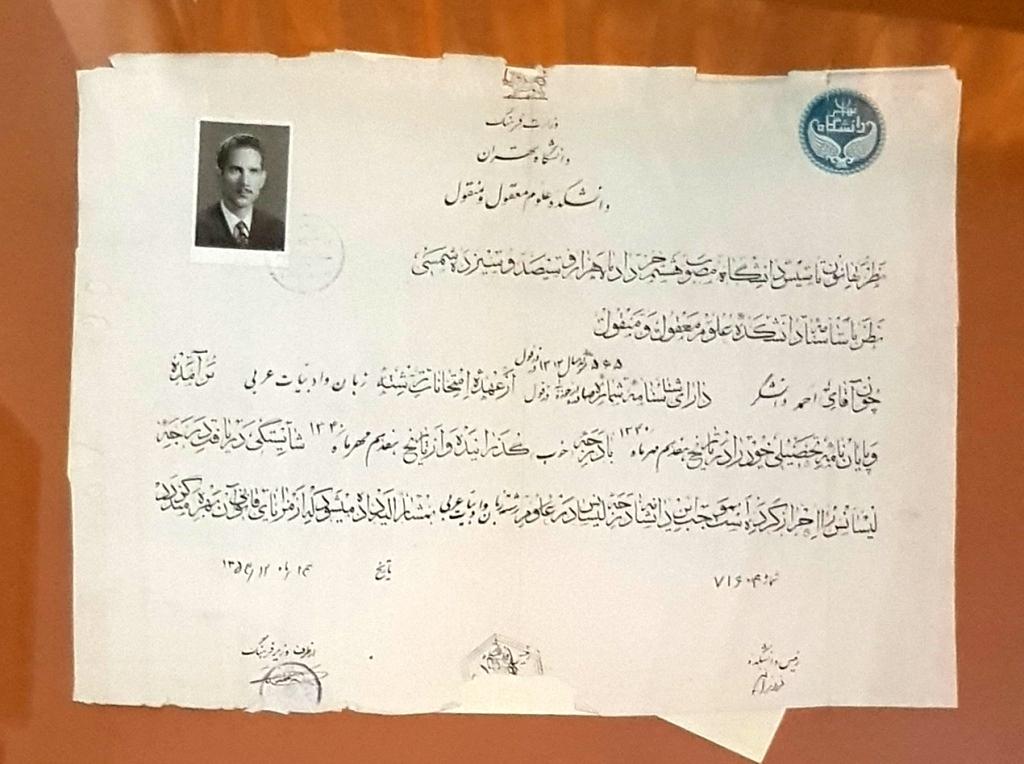 وزارت فرهنگ
دانشگاه تهران
دانشکده علوم معقول و منقول
دانشگاه تهران
نظر بقانون تأسیس دانشگاه مصوب هشتم خرداد ماه هزار و سیصد و سیزده شمسی
نظر باساسنامه دانشکده علوم معقول و منقول
چون آقای احمد دانشگر دارای شناسنامه شماره ۵۶۵ سال ۱۳۱۳ دزفول صادره از حوزه دزفول از عهده امتحانات رشته زبان و ادبیات عربی برآمده
و پایان نامه تحصیلی خود را در تاریخ هفدهم مهر ماه ۱۳۴۰ با درجه خوب گذرانیده و از تاریخ هفدهم مهر ماه ۱۳۴۰ شایستگی دریافت درجه
لیسانس را احراز کرده است بموجب این دانشنامه درجه لیسانس در علوم رشته زبان و ادبیات عربی بمشارالیه داده میشود که از مزایای قانونی آن بهره‌مند گردد
شماره ۷۱۶۰۳ تاریخ
رئیس دانشکده
از طرف وزیر فرهنگ